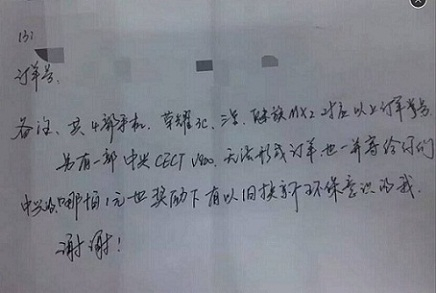 13:
订单号:
备注、共4部手机、荣耀3C、三星、魅族MX2对应以上订单号
另有一部中央CECT V20、无法形成订单也一并寄给你们
哪怕1元也奖励下有以旧换新环保意识的我.
谢谢!